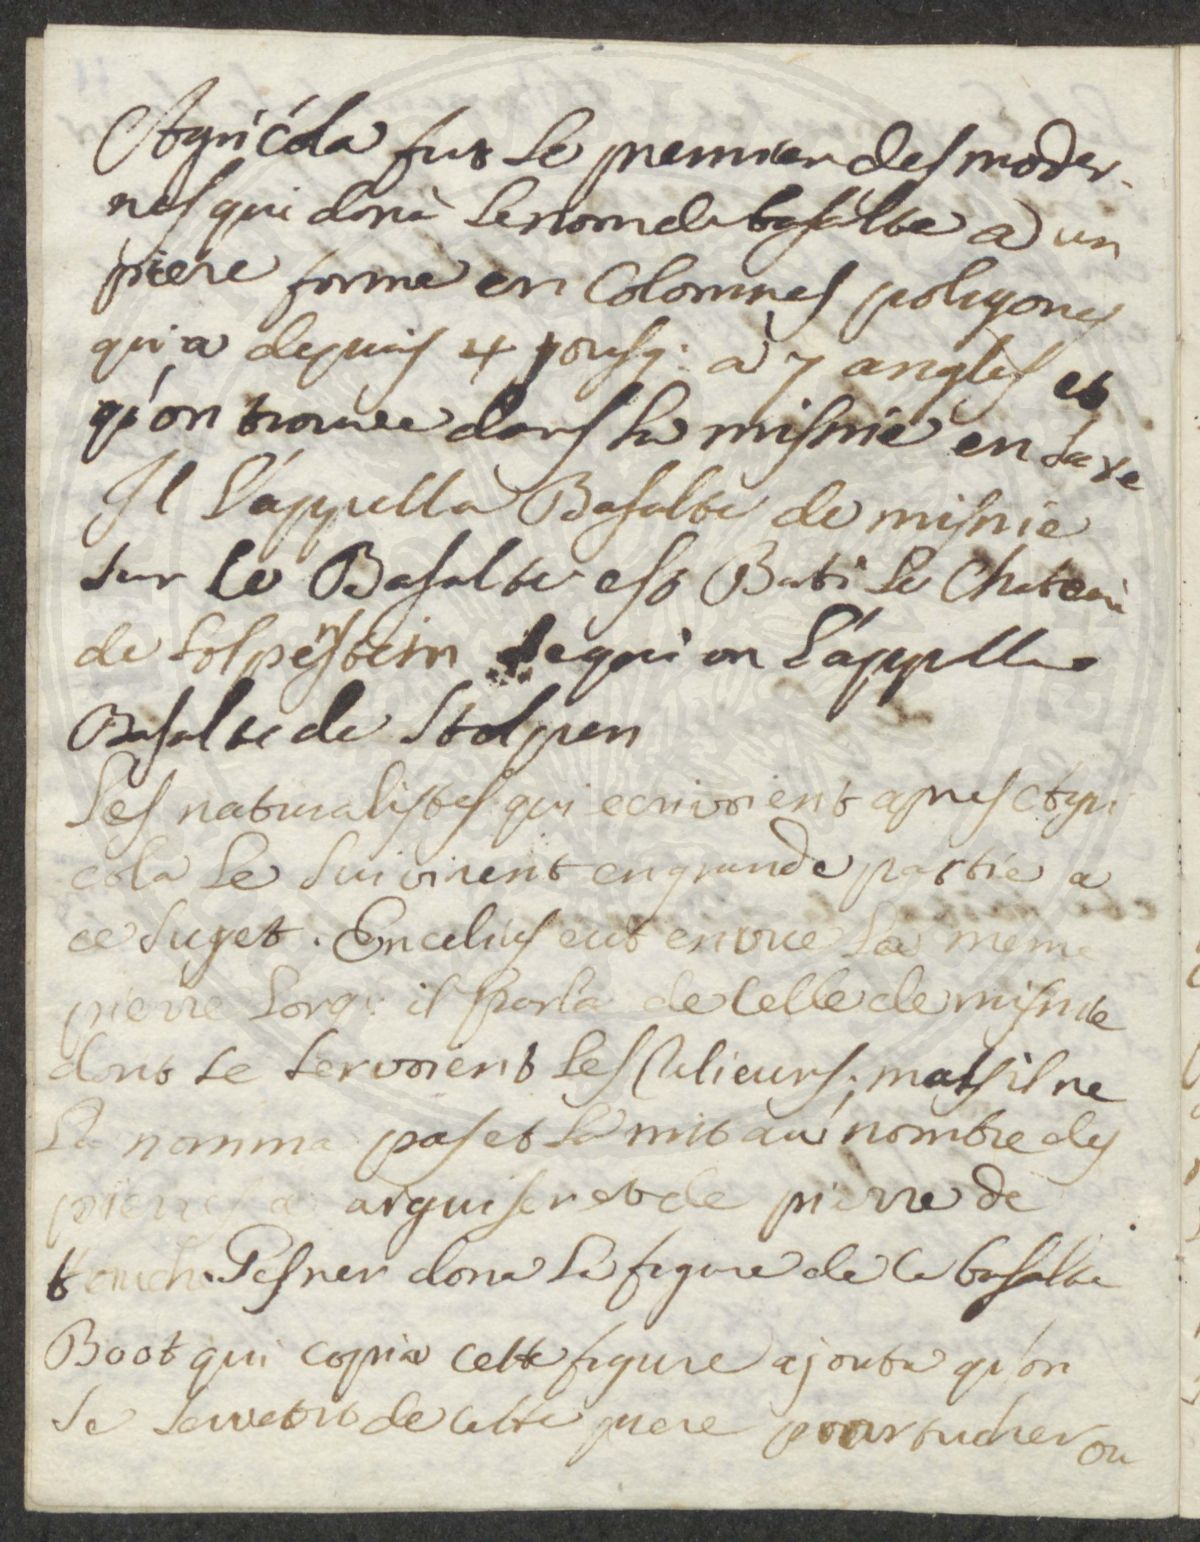 Agricola fut le premier des moder-
nes qui dona le nom de basalte a un
piere formé en Colomnes polygones
qui a depuis 4 jousq: a 7 angles et
q'on trouve dans la misnie en Saxe
Il l'appella Basalte de misnie
sur le Basalte est Bati le Chateau
de Solpenstein de qui on l'appelle
Basalte de Stolpen
Les naturalistes qui ecrivoient apres Agri
cola le suivirent en grande partie a
ce suget. Encelius eut en vue la meme
pierre lorq: il parla de celle de misnie
dont se servoient les Relieurs; mais il ne
la nomma pas et la mit au nombre des
pierres a arguiser et de pierre de
touche. Gesner dona la figure de ce basalte
Boot qui copia cette figure ajouta q'on
se servet de cette piere pour
ou